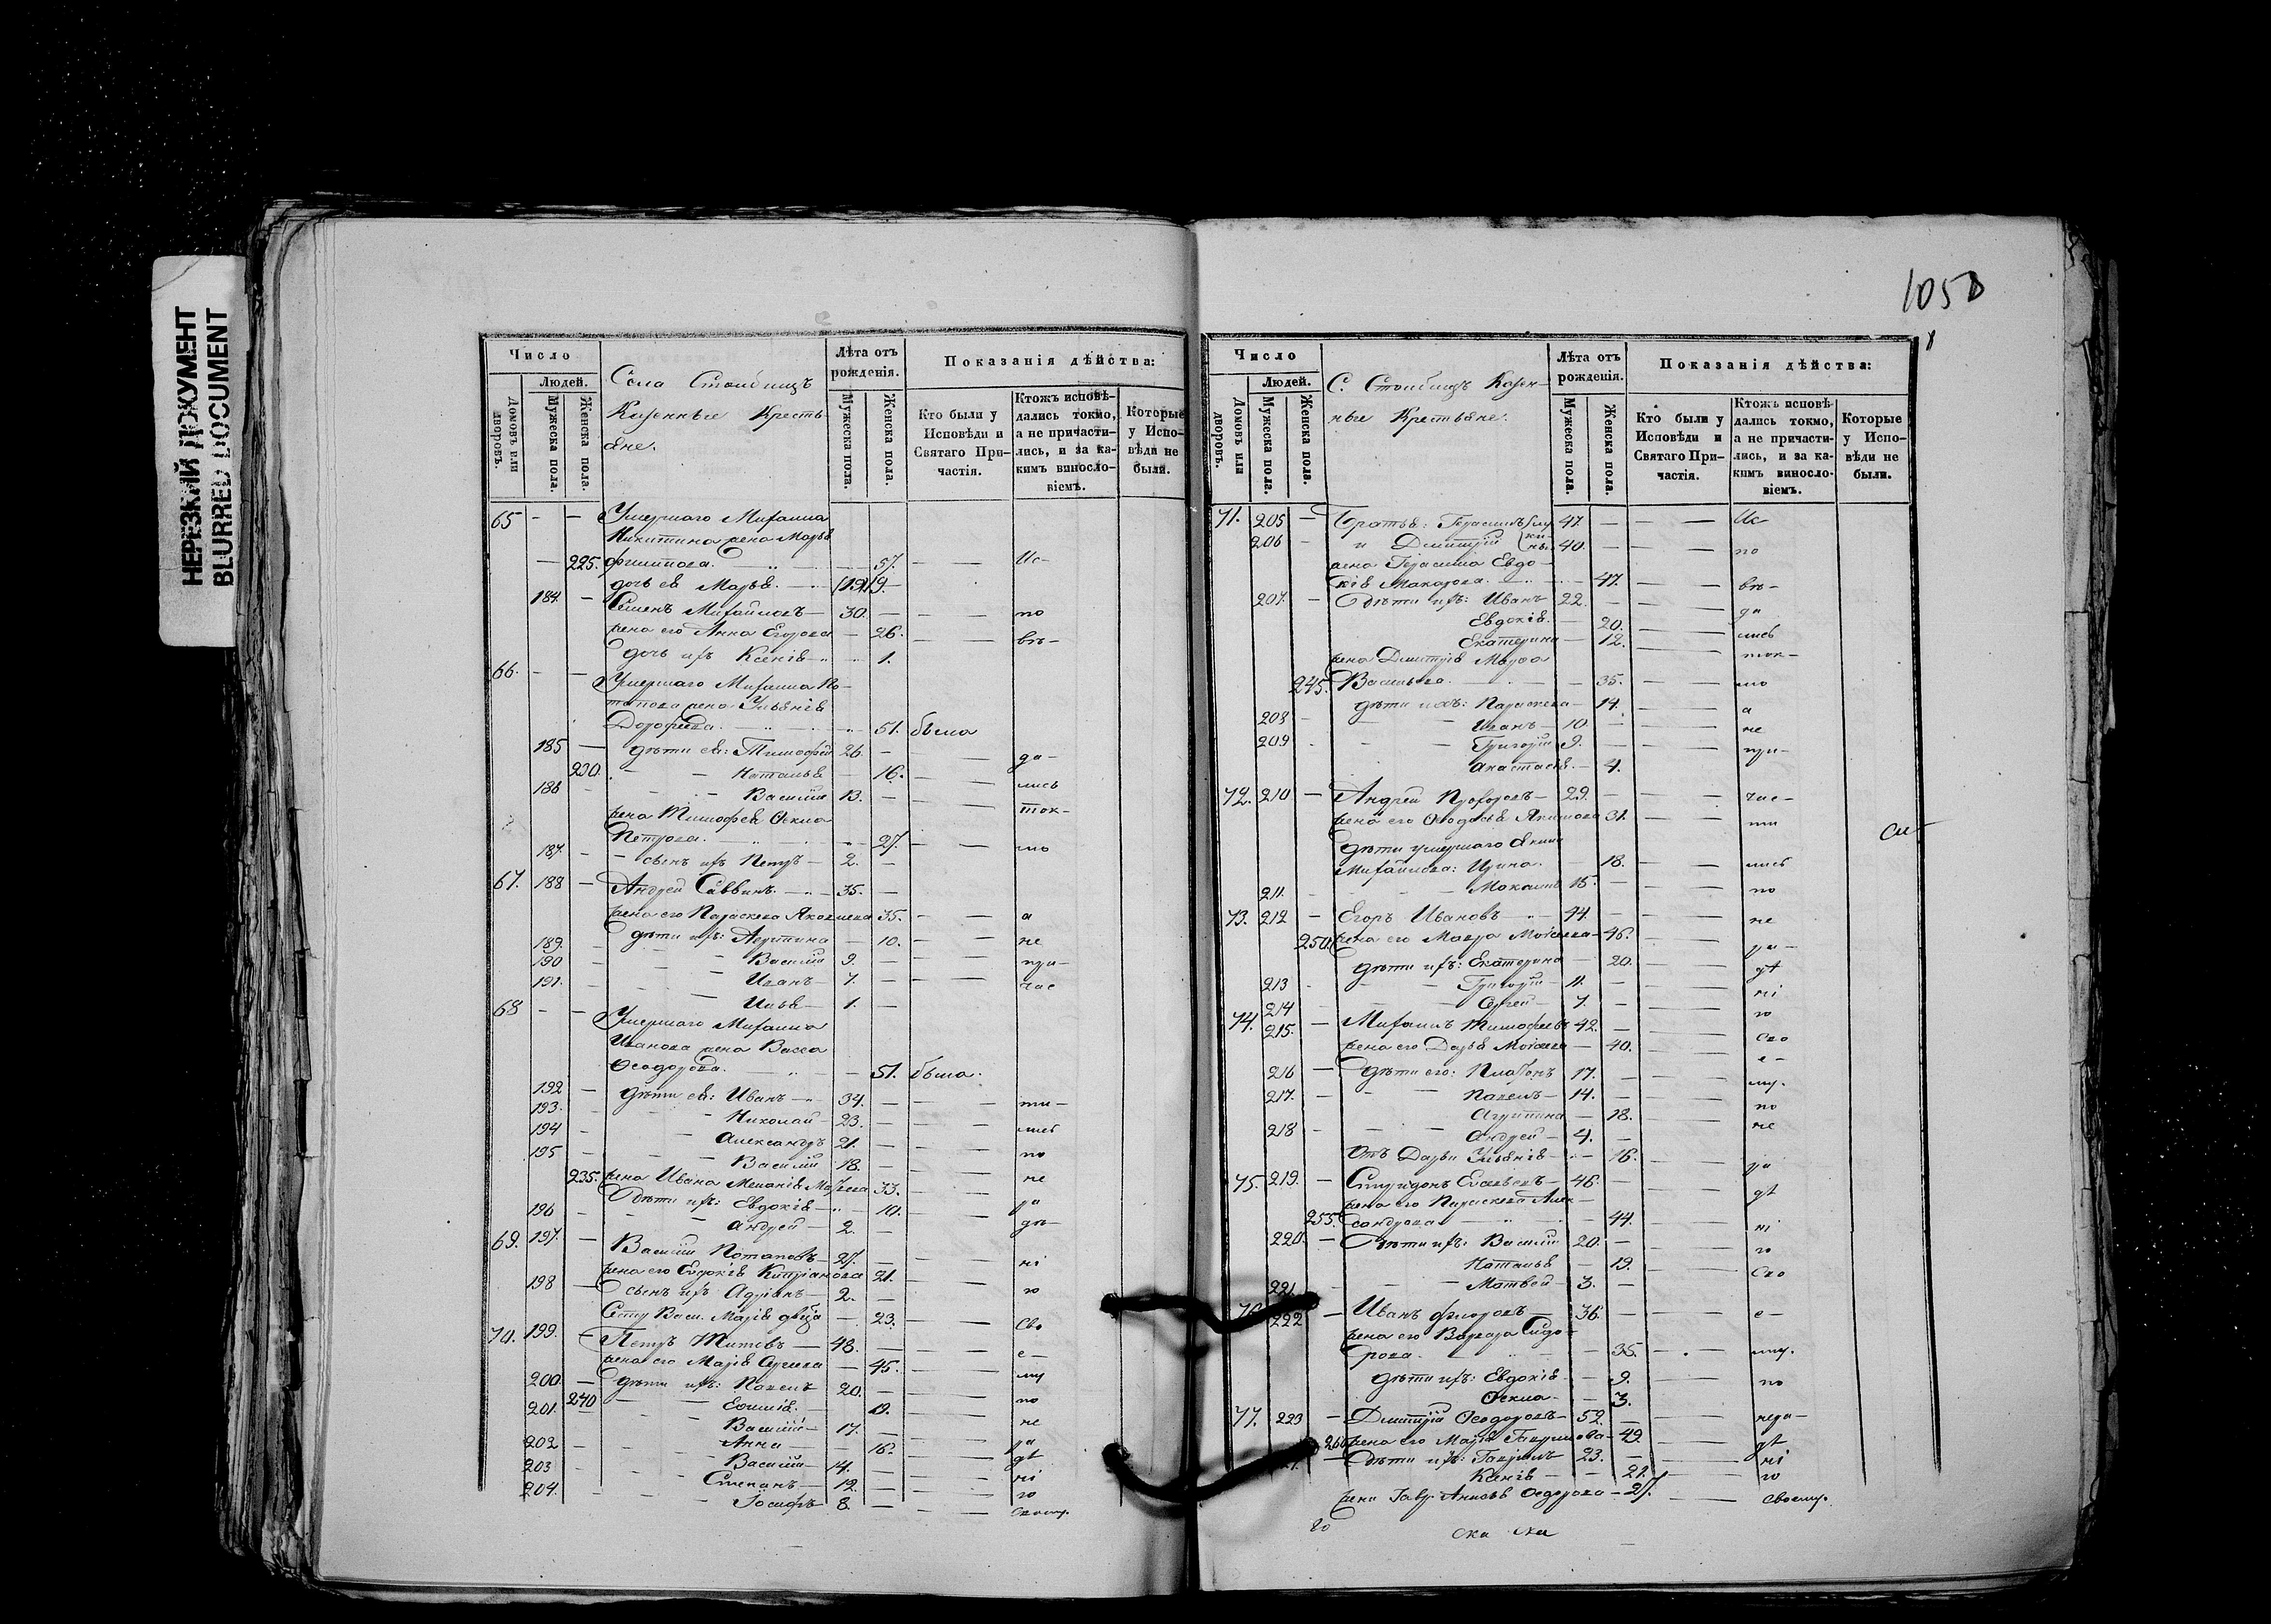 НЕРЕЗКИЙ ДОКУМЕНТ
BLURRED DOCUMENT
1050
Число
Людей.
Домовъ или дворовъ.
Мужеска пола.
Женска пола.
Села Столбищъ
Казенные Кресть
яне.
Лѣта отъ рожденія.
Мужеска пола.
Женска пола.
Показанія дѣйства:
Кто были у Исповѣди и Святаго При-частія.
Ктожъ исповѣ-дались токмо, а не причасти-лись, и за ка-кимъ винословіемъ.
Которые у Испо-вѣди не были.
65 - - Умершаго Михаила
Никитина жена Марья
— 225. Филиппова. 57. — Ис-
дочь ея Марья. 19.
184. - Семенъ Михайловъ — 30. — по
жена его Анна Егорова — 26. — вѣ-
дочь ихъ Ксенія 1.
66. - - Умершаго Михаила По-
тапова жена Ульянія
Дорофеева. 51. была
185 — дѣти ея: Тимофей 26. — да-
230. — Наталья — 16. — лись
186 - Василій 13. — ток-
жена Тимофея Фекла
Петрова. 27. — мо
187. - сынъ ихъ Петръ — 2. —
67. 188 — Андрей Саввинъ — 35. —
жена его Параскева Яковлева 35. — а
дѣти ихъ: Агрипина — 10. — не
189. - Василій 9. — при-
190 - Иванъ — 7. — час
191. - Илья — 1. —
68 - - Умершаго Михаила
Иванова жена Васса
Феодорова. 51. была.
192 — дѣти ея: Иванъ — 34. — ти-
193. - Николай — 23. — лись
194 - Александръ 21. — по
195 - Василій 18. —
235. жена Ивана Меланія 33. — не
дѣти ихъ: Евдокія — 10. — ра
196 - Андрей — 2. — дѣ-
69. 197. — Василій Потаповъ — 27. — ні
жена его Евдокія Кипріанова 21.
198 — сынъ ихъ Адріанъ — 2. — ю
Сестр Васи. Марія двца — 23. — сво
70. 199. - Петръ Титовъ — 48. — е-
жена его Марія Сергеева — 45. — му
200. — дѣти ихъ: Павелъ 20. — по
240 — 19. — не
201. - Василій — 17. — ра
Анна — 16. — дѣ
202 - Василій — 14. — ні
203 - Степанъ — 12. — ю
204. - Іосифъ — 8. — своему.
Число
Людей.
Домовъ или дворовъ.
Мужеска пола.
Женска пола.
С. Столбищъ Казен-
ные Крестьяне.
Лѣта отъ рожденія.
Мужеска пола.
Женска пола.
Показанія дѣйства:
Кто были у Исповѣди и Святаго При-частія.
Ктожъ исповѣ-дались токмо, а не причасти-лись, и за ка-кимъ винословіемъ.
Которые у Испо-вѣди не были.
71. 205 — Братья: Герасимъ 47. — Ис-
206 - и Дмитрій 40. — по
жена Герасима Евдо-
кія Макарова. 47. — вѣ-
207. - Дѣти ихъ: Иванъ 22. — да
Евдокія. — 20. — лись
Екатерина — 12. — ток-
жена Дмитрія Марфа
245. Васильева. — 35. — мо
дѣти ихъ: Параскева — 14. — а
208 - Иванъ — 10. — не
209 - Григорій 9. — при-
Анастасія. — 4.
72. 210 — Андрей Прохоровъ — 29. — час-
жена его Феодосья Якимова 31. — ти
дѣти умершаго Якима
Михайлова: Ирина. — 18. — лись
211. - 15. — по
73. 212 — Егоръ Ивановъ — 44. — не
250. жена его Мавра Моисеева — 46. — ра-
дѣти ихъ: Екатерина — 20. — дѣ
213 - Григорій — 11. — ні
214 - Сергей — 7. — ю
74. 215. — Михаилъ Тимофеевъ 42. — сво
жена его Дарья Моисеева — 40. — е-
216 — Дѣти его: Платонъ 17. — му.
217. — Павелъ — 14. — по
Агрипина — 18. — не
218 — Андрей — 4. —
отъ Дарьи Ульянія — 16. — ра
75. 219. — Спиридонъ 46. — дѣ
жена его Параскева Алек-
255. сандрова — 44. — ні
220. — Дѣти ихъ: Василій 20. — ю
Наталья — 19. — сво
221. — Матвей — 3. —
76. 222 — Иванъ Флоровъ — 36. — е-
жена его Варвара Сидо-
рова. — 35. — му.
дѣти ихъ: Евдокія — 9. — по
Фекла — 3.
77. 223 — Дмитрій Феодоровъ — 52. — нера-
260 жена его Марія Гаврилова — 49. — дѣ
— Дѣти ихъ: Гавріилъ 23. — ні
Ксенія — 21. — ю
жена Гавр. Анисья Федорова — 27. — своему.